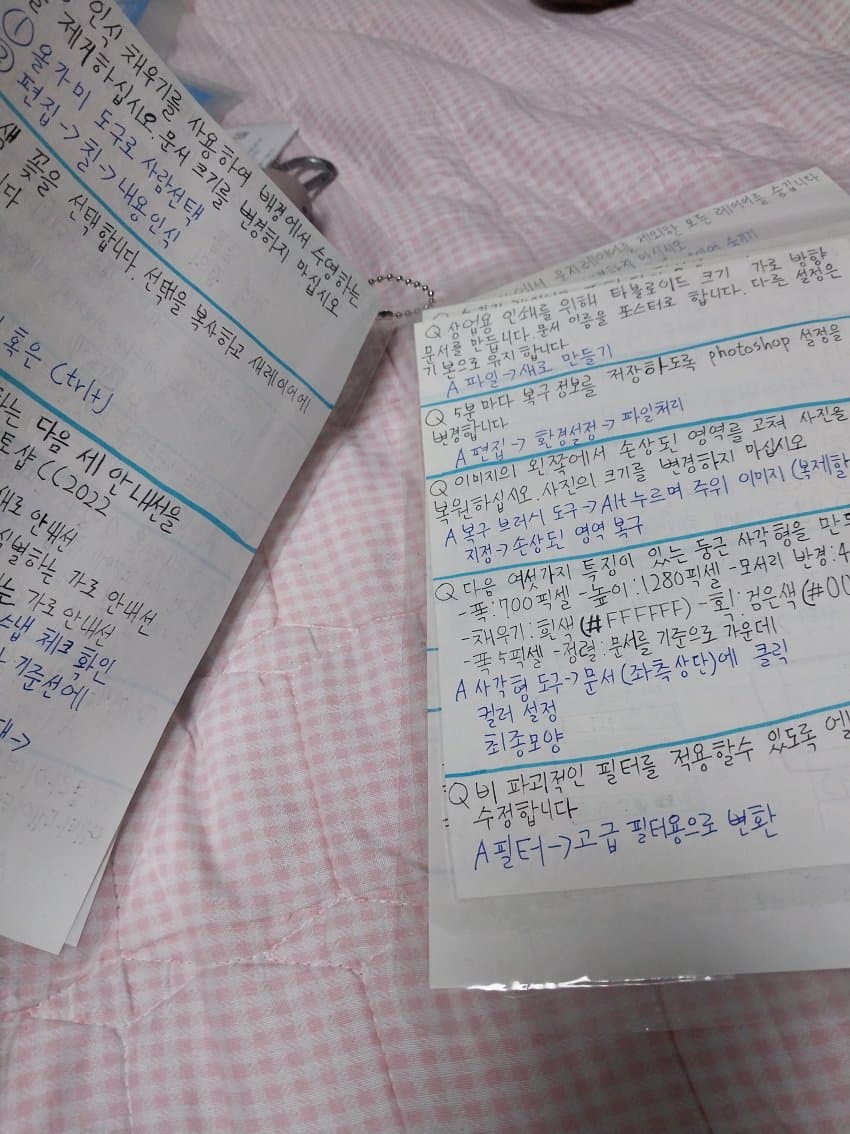 인식 채우기를 사용하여 배경에서 수영하는
제거하십시오. 문서 크기를 변경하지 마십시오
① 올가미 도구로 사람선택
② 편집 → 칠 → 내용인식
꽃을 선택합니다. 선택을 복사하고 새레이어에
니다
혹은 Ctrl+J
하는 다음 세 안내선을
토샵 CC2022
새로 안내선
식별하는 가로 안내선
는 가로 안내선
스냅 체크 확인
기준선에
제외한 모든 레이어를 숨깁니다
마십시오
숨기기
Q 상업용 인쇄를 위해 타블로이드 크기 가로 방향
문서를 만듭니다. 문서 이름을 포스터로 합니다. 다른 설정은
기본으로 유지합니다
A 파일 → 새로 만들기
Q 5분마다 복구정보를 저장하도록 photoshop 설정을
변경합니다
A 편집 → 환경설정 → 파일처리
Q 이미지의 왼쪽에서 손상된 영역을 고쳐 사진을
복원하십시오. 사진의 크기를 변경하지 마십시오
A 복구 브러시 도구 → Alt 누르며 주위 이미지 (복제할
지정 → 손상된 영역 복구
Q 다음 여섯가지 특징이 있는 둥근 사각형을 만드
-폭:700픽셀 -높이:1280픽셀 -모서리 반경:4
-채우기:흰색(#FFFFFF) -획:검은색(#00
-폭5픽셀 -정렬:문서를 기준으로 가운데
A 사각형 도구 → 문서(좌측상단)에 클릭
컬러 설정
최종모양
Q 비 파괴적인 필터를 적용할수 있도록
수정합니다
A 필터 → 고급 필터용으로 변환